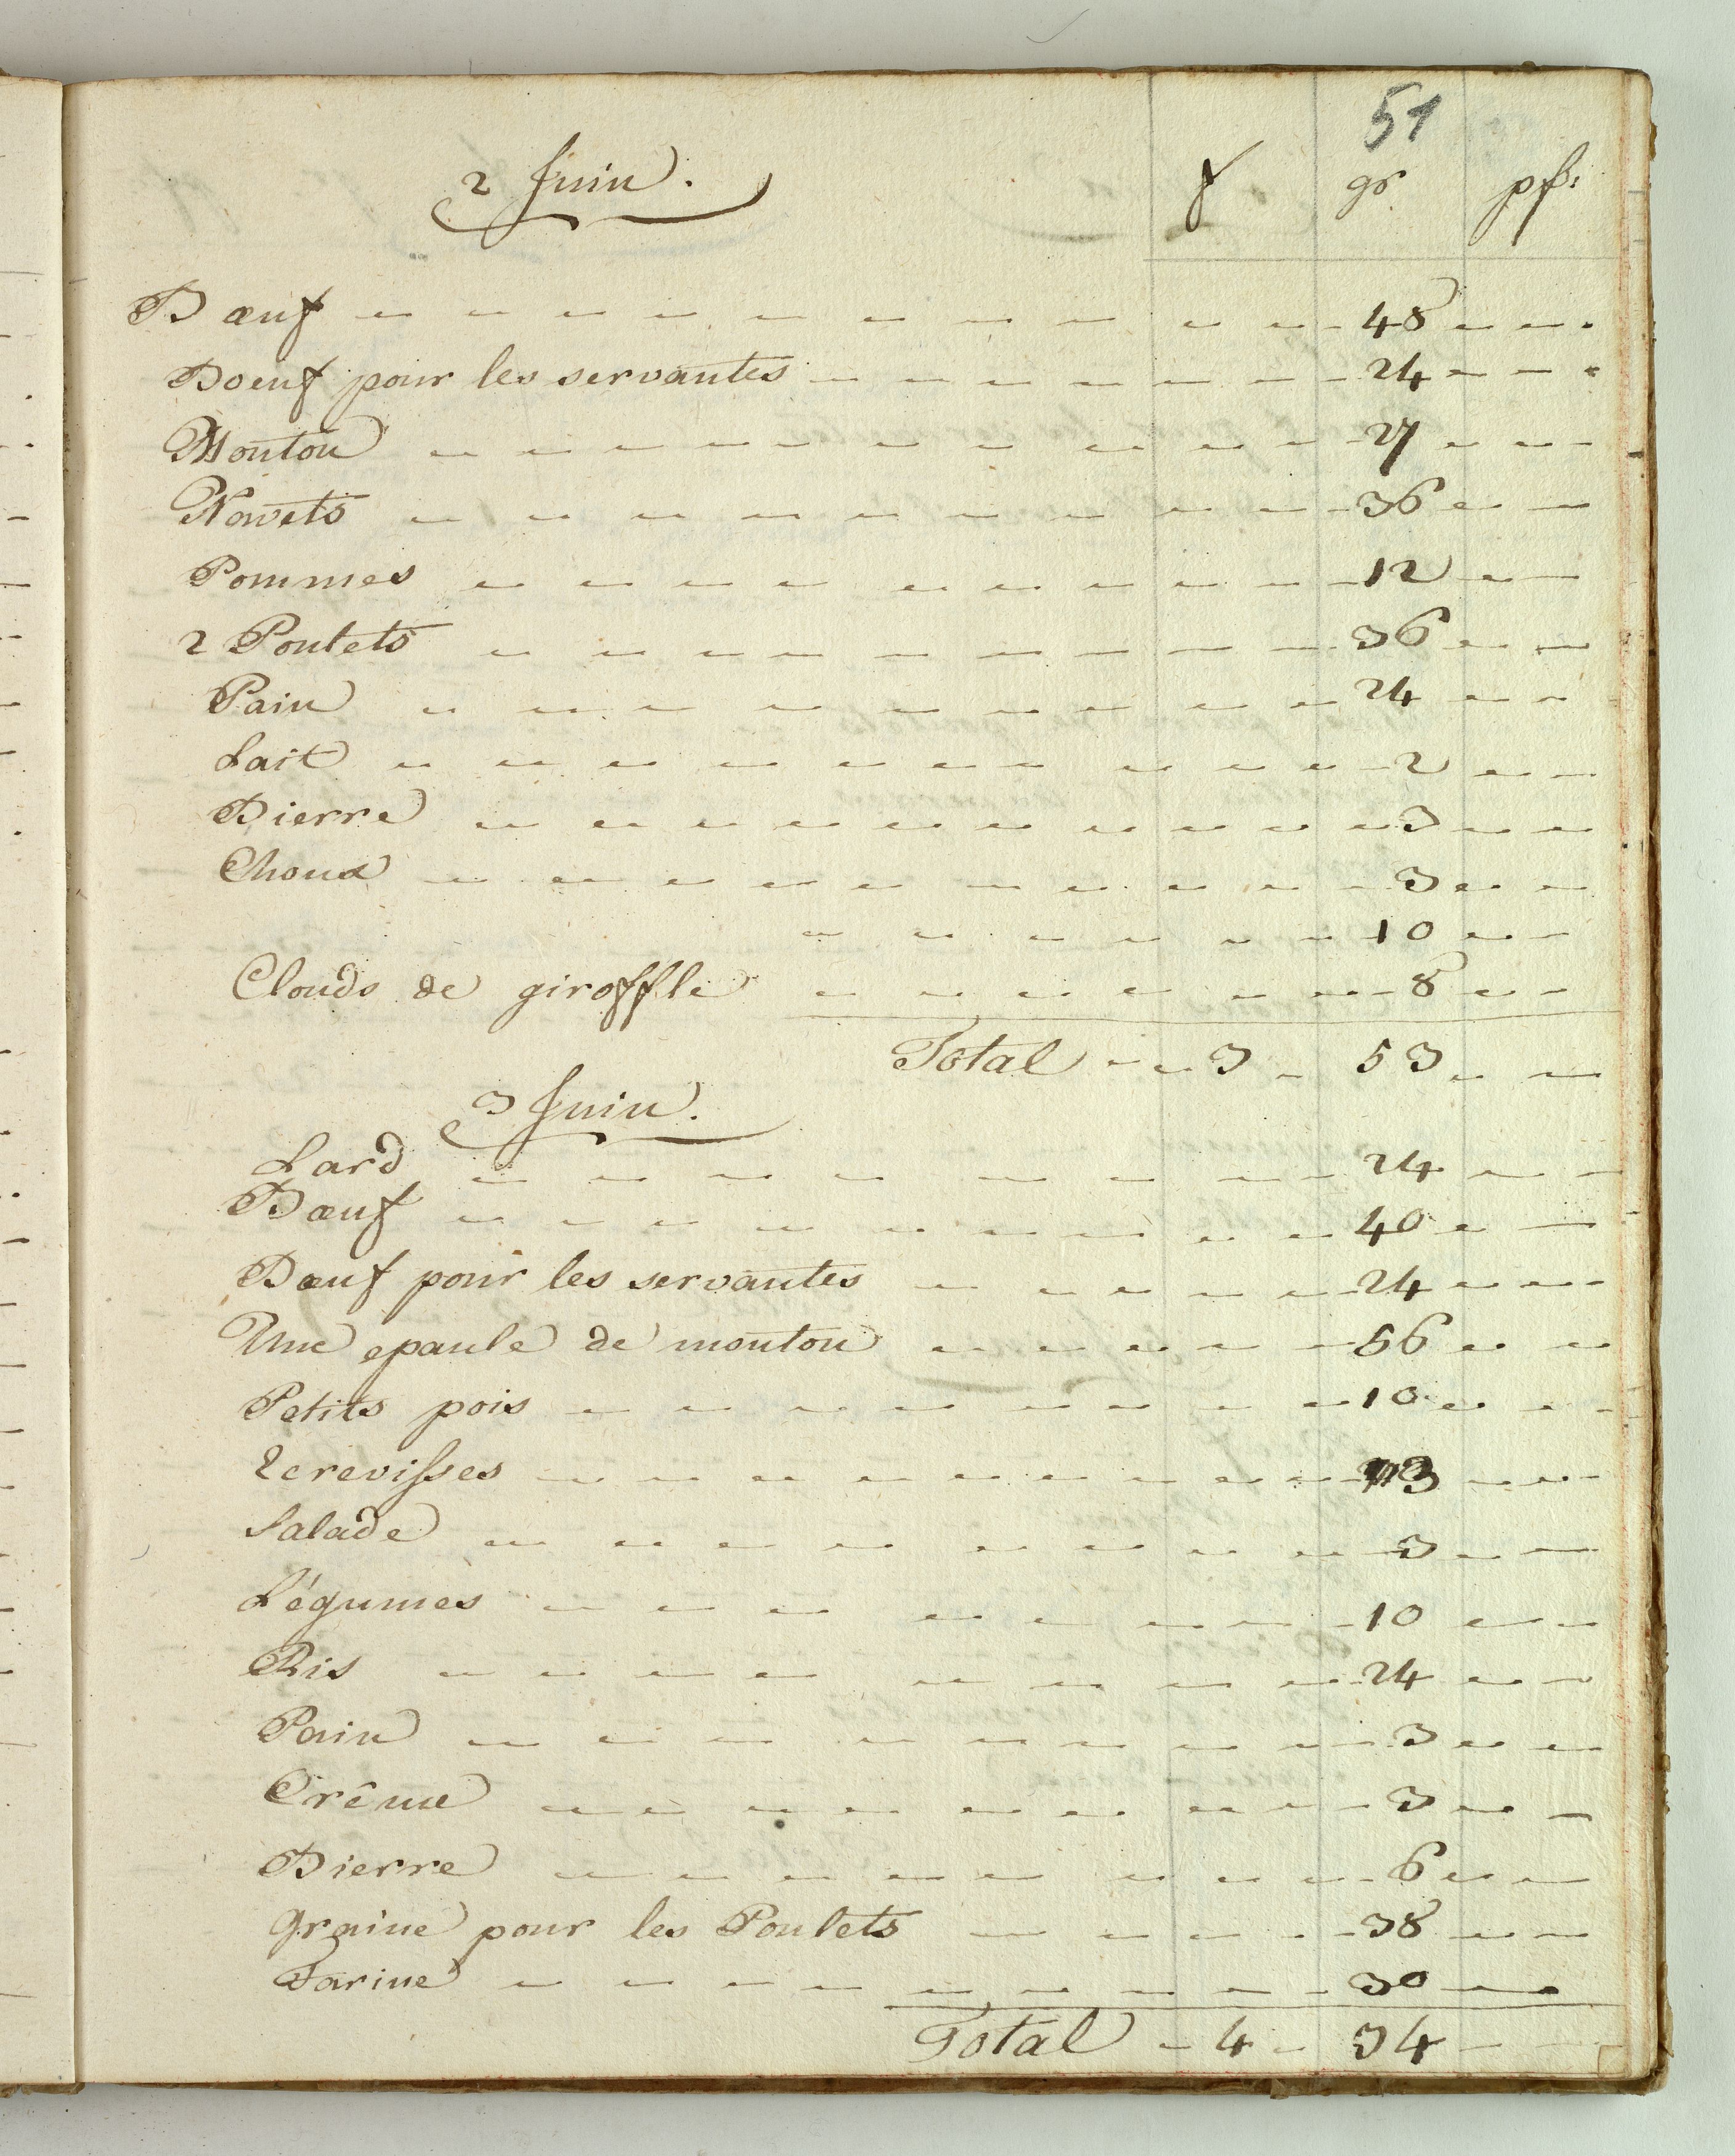 51
2 Juin.
f gr. pf:
Bœuf 48
Boeuf pour les servantes 24
Mouton 27
Navets 36
Pommes 12
2 Poulets 36
Pain 24
Lait 2
Bierre 3
Choux 3
10
Clouds de giroffle 8
Total 3 53
3 Juin.
Lard 24
Bœuf 40
Bœuf pour les servantes 24
Une epaule de mouton 56
Petits pois 10
Ecrevisses 3
Salade 3
Légumes 10
Ris 24
Pain 3
Crême 3
Bierre 6
Graine pour les Poulets 38
Farine 30
Total 4 34